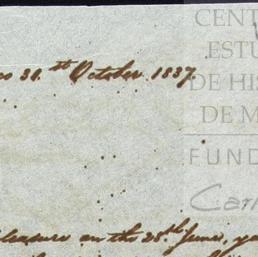 CENT
ESTU
DE HIS
DE M
FUND
Car
os 31.st October 1837.
leasure on the 28th June, ye